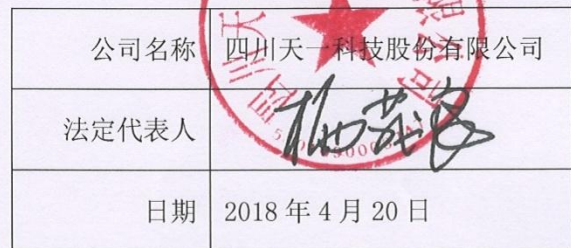 公司名称 四川天一科技股份有限公司
法定代表人
日期 2018 年 4 月 20 日